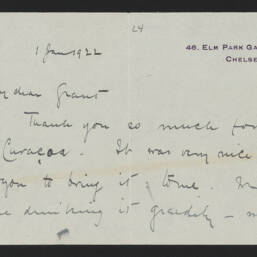 24
1 Jan 1922
46, ELM PARK GA
CHELSE
y dear Grant
Thank you so much for
Curaçoa. It was very nice
you to bring it to me.
e drinking it greedily –